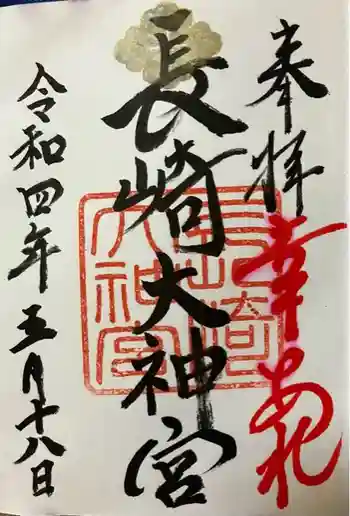 奉拝
幸あれ
長崎大神宮
長崎
大神宮
令和四年五月十八日